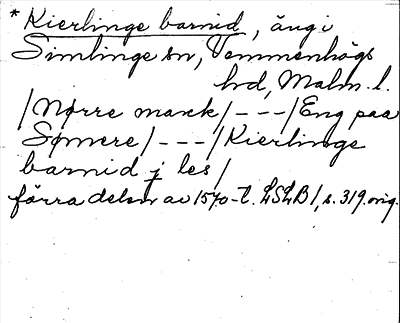 * Kierlinge barnid, äng i
Simlinge sn, Vemmenhögs
hd, Malm. l.
/Nørre marck/---/Eng paa
Sømere/---/Kierlinge
barnid j les/
förra delen av 1570-t. LSLB 1, s. 319. orig.